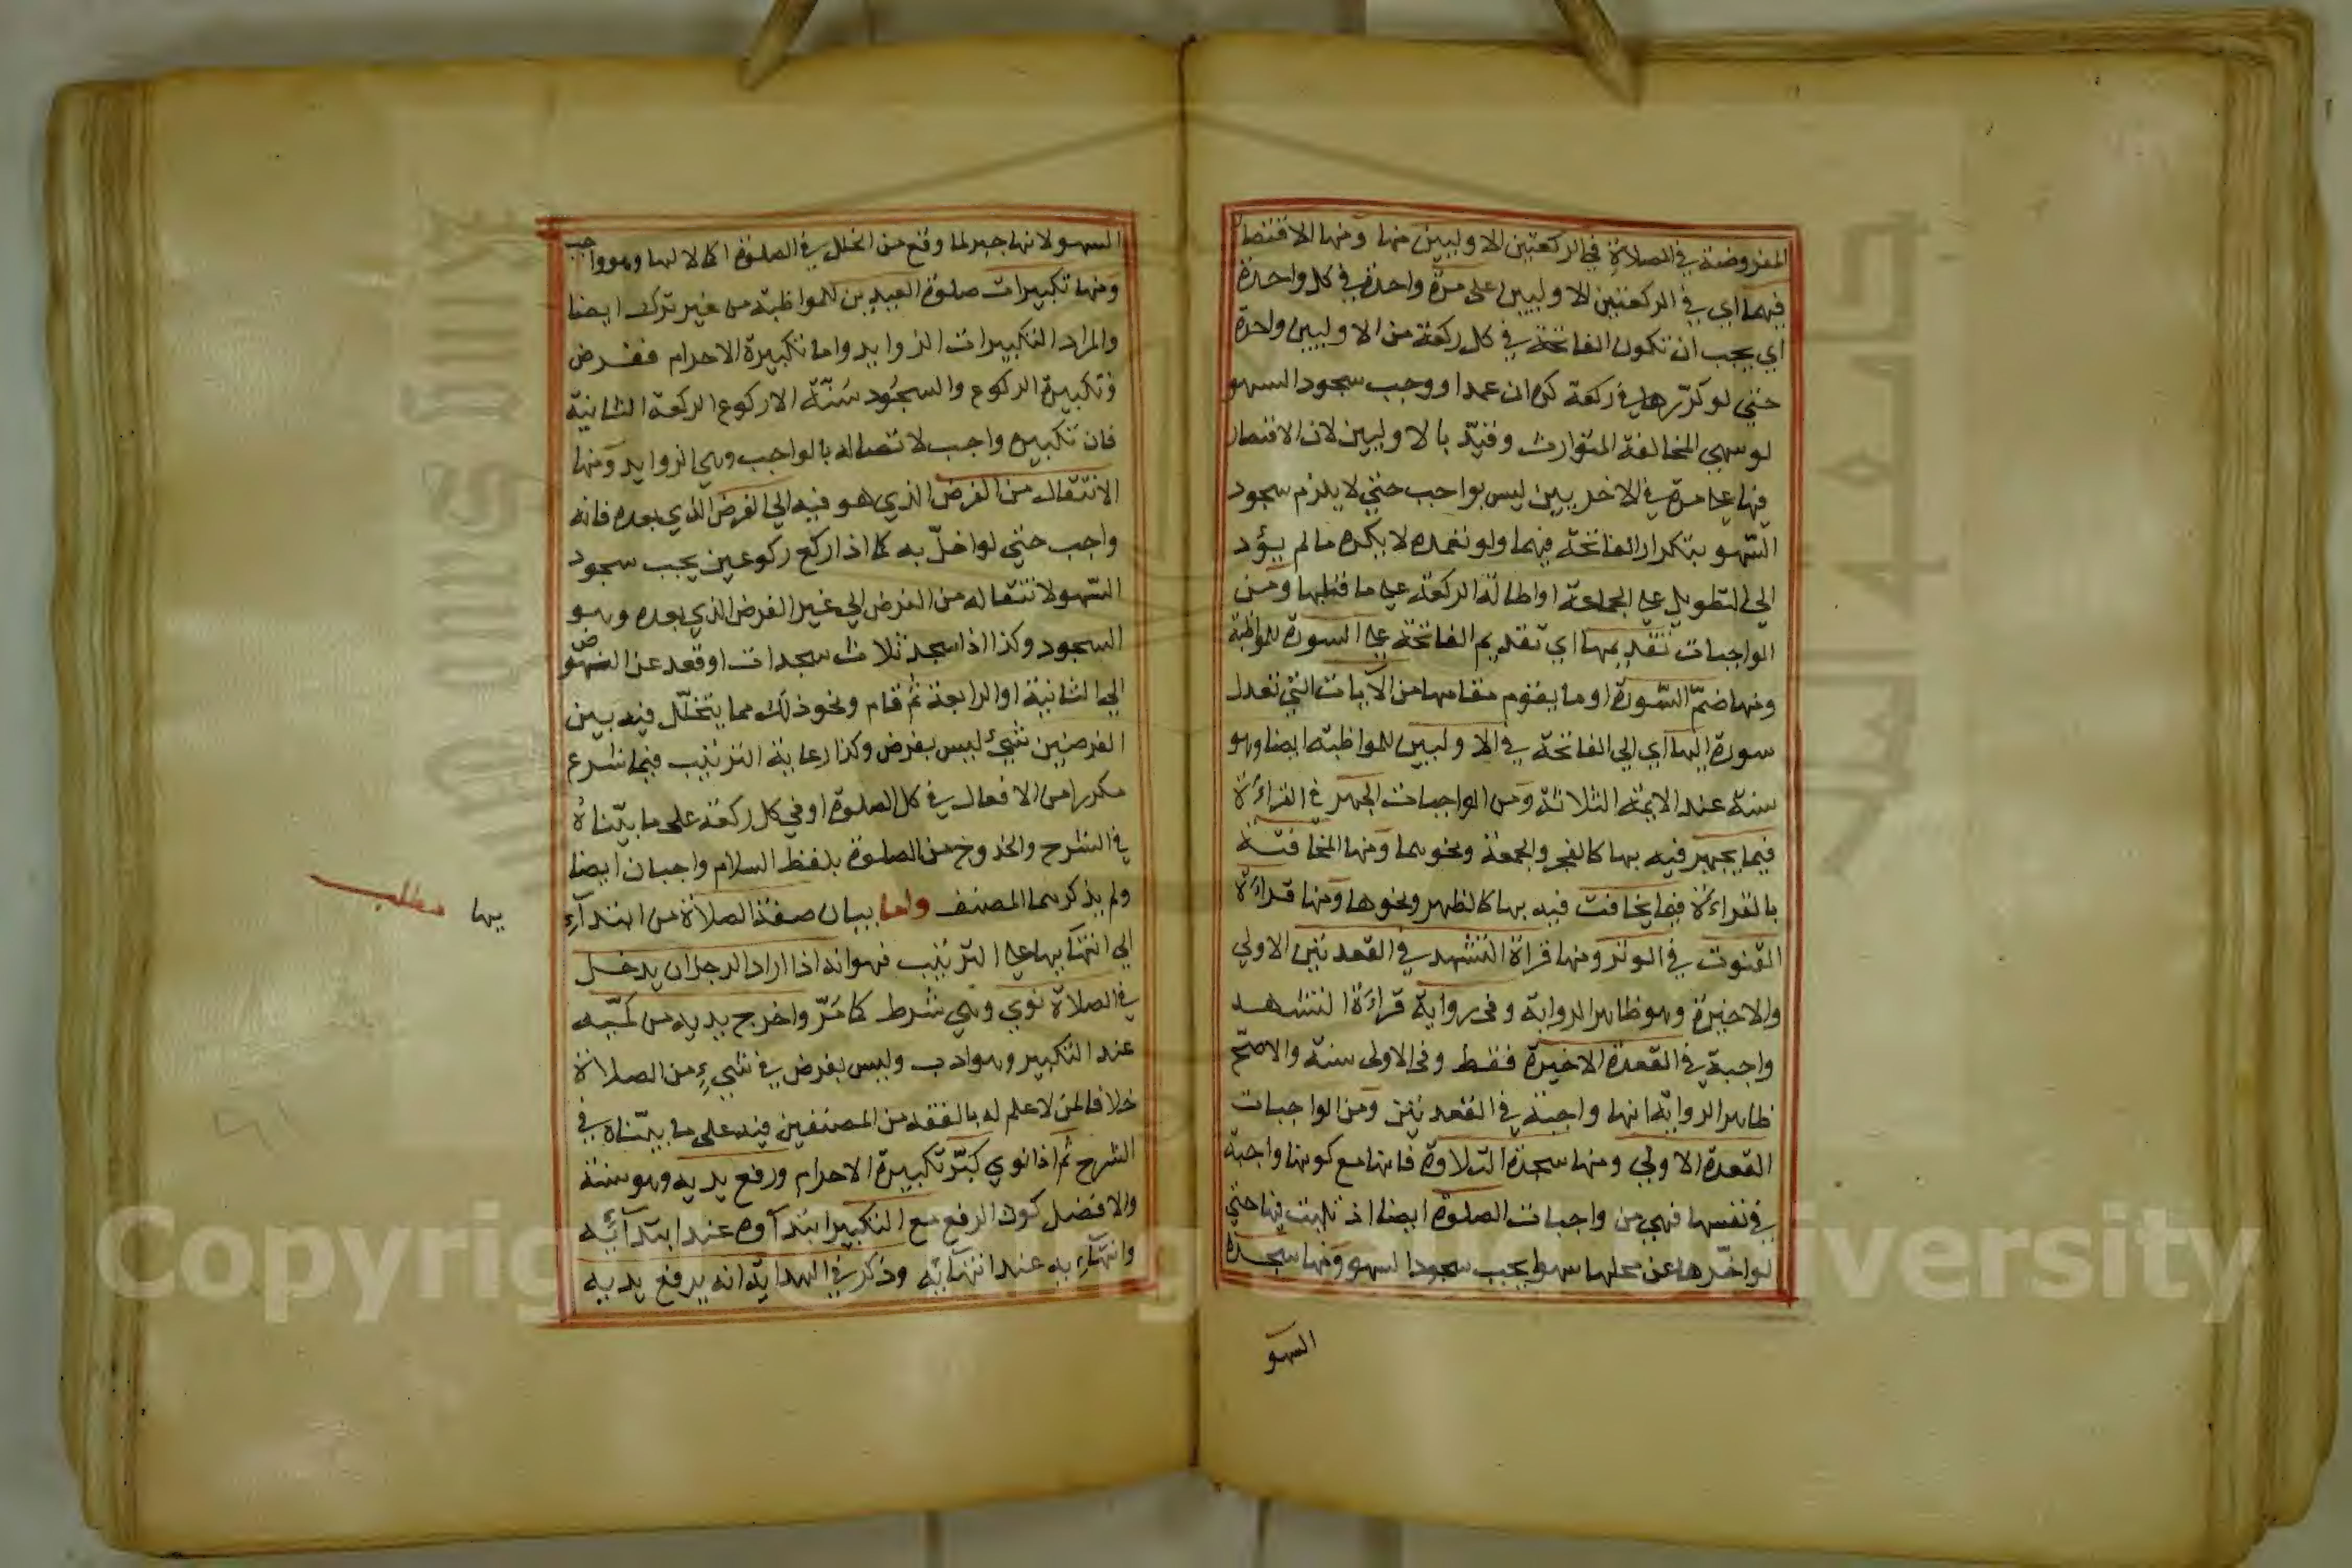 المفروضة في الصلاة في الركعتين الاوليين منها ومنها الاقتصار
فيهما اي في الركعتين الاوليين على مرة واحدة في كل واحدة
اي يجب ان تكون الفاتحة في كل ركعة من الاوليين واحدة
حتي لو كرّرها في ركعة كره ان عمدا ووجب سجود السهو
لو سهى لمخالفة المتوارث وقيّد بالاوليين لان الاقتصار
فيها على مرة في الاخريين ليس بواجب حتي لا يلزم سجود
السّهو بتكرار الفاتحة فيهما ولو تعمده لا يكره ما لم يؤد
الي التطويل على الجماعة او اطالة الركعة على ما قبلها ومن
الواجبات تقديمها اي تقديم الفاتحة على السورة للمواظبة
ومنها ضمّ السّورة او ما يقوم مقامها من الآيات التي تعدل
سورة اليها اي الي الفاتحة في الاوليين للمواظبة ايضا وهو
سنة عند الايمة الثلاثة ومن الواجبات الجهر في القراءة
فيما يجهر فيه بها كالفجر والجمعة ونحوهما ومنها المخافتة
بالقراءة فيما يخافت فيه بها كالظهر ونحوها ومنها قراءة
القنوت في الوتر ومنها قراة التشهد في القعدتين الاولي
والاخيرة وهو ظاهر الرواية وفى رواية قراءة التشهد
واجبة في القعدة الاخيرة فقط وفى الاولى سنة والاصحّ
ظاهر الرواية انها واجبة في القعدتين ومن الواجبات
القعدة الاولي ومنها سجدة التلاوة فانها مع كونها واجبة
في نفسها فهي من واجبات الصلوة ايضا اذ تليت فيها حتي
لو اخّرها عن محلها سهوا يجب سجود السهو ومنها سجدة
السهو
السهو لانها جبر لما وقع من الخلل في الصلوة اكمالا لها وهو واجب
ومنها تكبيرات صلوة العيدين للمواظبة من غير ترك ايضا
والمراد التكبيرات الزوايد واما تكبيرة الاحرام ففرض
وتكبيرة الركوع والسجود سنّة الا ركوع الركعة الثانية
فان تكبيره واجب لاتصاله بالواجب وهي الزوايد ومنها
الانتقال من الفرض الذي هو فيه الي الفرض الذي بعده فانه
واجب حتي لو اخلّ به كما اذا ركع ركوعين يجب سجود
السّهو لانتقاله من الفرض الي غير الفرض الذي بعده وهو
السجود وكذا اذا سجد ثلاث سجدات او قعد عن النهوض
الي الثانية او الرابعة ثم قام ونحو ذلك مما يتخلّل فيه بين
الفرضين شيئ ليس بفرض وكذا رعاية الترتيب فيما شرع
مكررا من الافعال في كل الصلوة او في كل ركعة على ما بيّناه
في الشرح والخروج من الصلوة بلفظ السلام واجبان ايضا
ولم يذكرهما المصنف واما بيان صفة الصلاة من ابتدآء
يها
مطلب
الي انتهآيها على الترتيب فهو انه اذا اراد الرجل ان يدخل
في الصلاة نوي وهي شرط كما مَرّ واخرج يديه من كمّيه
عند التكبير وهو ادب وليس بفرض في شيءٍ من الصلاة
خلافا لمن لا علم له بالفقه من المصنفين فيه على ما بيّناه في
الشرح ثم اذا نوي كبّر تكبيرة الاحرام ورفع يديه وهو سنة
والافضل كون الرفع مع التكبير ابتدآوه عند ابتدآئه
وانتهآءه عند انتهآيه وذكر في الهداية انه يرفع يديه
Copyright © King Saud University